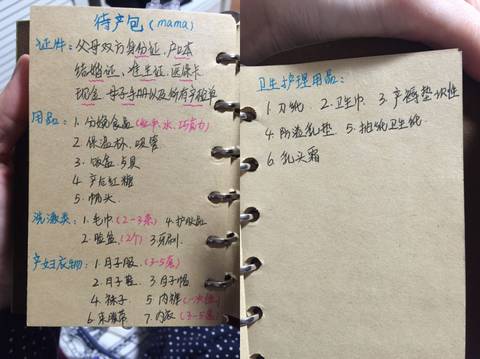 待产包(mama)
证件: 父母双方身份证、户口本
结婚证、准生证、医保卡
现金 母子手册以及所有产检单
用品: 1. 分娩食品(红牛、水、巧克力)
2. 保温杯、吸管
3. 饭盒、勺具
4. 产后红糖
5. 梳头
洗漱类: 1. 毛巾(2-3条) 4. 护肤品
2. 脸盆(2个) 3. 牙刷
产妇衣物: 1. 月子服(3-5套)
2. 月子鞋 3. 月子帽
4. 袜子 5. 内裤(一次性)
6. 束腹带 7. 内衣(3-5套)
卫生护理用品:
1. 刀纸 2. 卫生巾 3. 产褥垫 一次性
4. 防溢乳垫 5. 抽纸卫生纸
6. 乳头霜